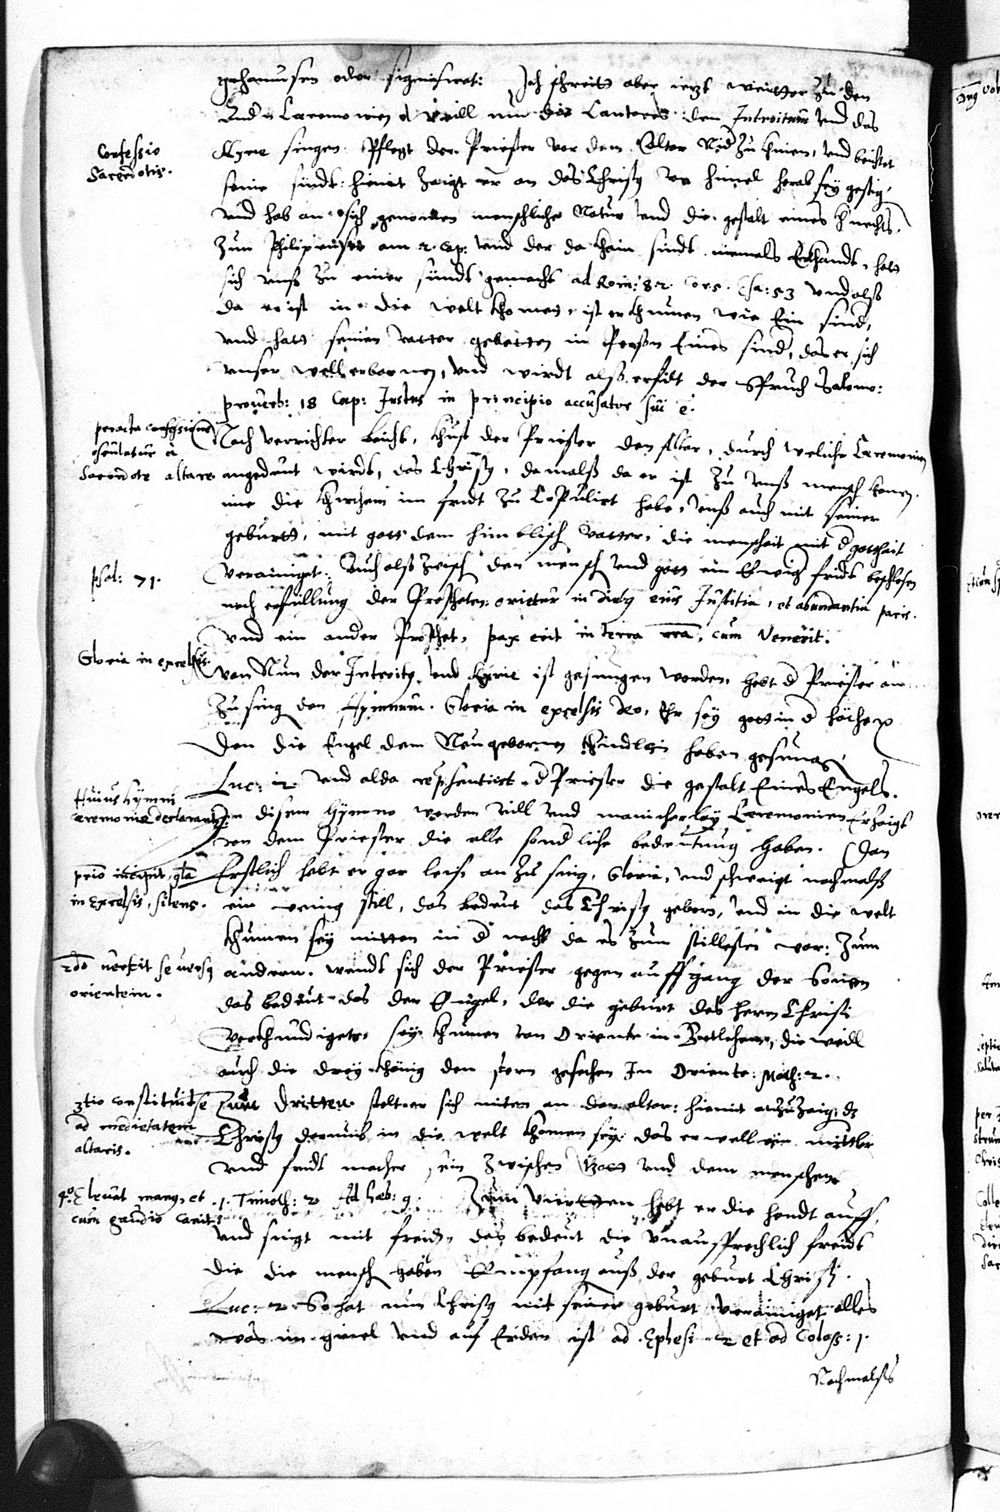 oder significat: Ich schreit aber ietzt weitter zu den
Ceremonien will nun die Cantores den Introitum und das
Kyrie singen. Pflegt der Priester vor dem Altar Nid zu knien, und beichtet
Confessio
Sacerdotis.
seine sindt: hiemit zaigt er an das Christus vom himel herab sey gestig,
und hab an sich genomen menschliche Natur und die gestalt eines knechts,
Zun Philipensern am 2. Cap: und der da khain sindt niemals Erkhandt, hatt
sich unß zu einer sündt gemacht ad Rom: 8 2 Cor 5. Esa: 53 und alß
da er ist in die welt khomen, ist er khumen wie Ein sinder,
und hatt seinen vatter gebetten in Person Eines sinders, das er sich
unser well erbarmen, und wirdt alß erfült der Spruch Salomo:
proverb: 18 Cap: Justus in principio accusator sui e.
peracta confessione
osculatur à
Sacerdote altare
Nach verrichter beicht, khust der Priester den Altar, durch weliche Ceremonien
angedeut wirdt, das Christus, damalß da er ist zu unß mensch komen,
ime die khirchen im fridt zu Copulirt habe, unß auch mit seiner
geburtt, mit gott dem himblisch vatter, die menscheit mit d gottheit
verainiget. Auch alß zwisch den mensch und gott ein Ewig fridt beschlosen
psal: 71.
nach erfüllung der Propheten: orietur in dieb eius Justitia, et abundantia pacis.
Und ein ander Prophet, pax erit in terra nra, cum venerit.
Gloria in excelsis
Wan Nun der Introitus und Kyrie ist gesungen worden, hebt d Priester an
zu sing den Hymnum. Gloria in excelsis deo, Ehr sey gott in d höche
Den die Engel dem Neugebornen khindlein haben gesungen,
Luc: 2 und alda repsentiert d Priester die gestalt Eines Engels.
Huius hymni
ceremoniae declarantur
In disem Hymno werden vill und manicherley Ceremonien Erzaigt
von dem Priester die alle sondliche bedeutung haben. Dan
primo incipitur gla
in Excelsis, silens.
Erstlich hebt er gar leise an zu sing, Gloria, und schweigt nachmalß
ein wenig still, das bedeut das Christus geborn, und in die welt
khumen sey mitten in d nacht da es zum stillesten war: Zum
2do vertit se versus
orientem.
andern. wendt sich der Priester gegen auffgang der Sonnen
das bedeut das der Engel, der die geburt des herrn Christi
verkhundiget, sey khumen von Oriente in Bethlehem, die weill
auch die drey khönig den stern gesehen In Oriente: Math: 2.
3tio constituit se
ad medietatem
altaris.
Zum Dritten stelt er sich mitten an den altar: hiemit anzuzaigen dz
Christus dermit in die welt khomen sey: das er well ein mittler
und fridt macher sein zwischen Gott und dem menschen
4o Elevat manus et
cum gaudio canit
1. Timoth: 2 Ad Heb: 9. Zum Vierten hebt er die hendt auff,
und singt mit freidt, das bedeut die unausprechlich freidt
die die mensch haben Empfang auß der geburt Christi.
Luc: 2. So hat nun Christus mit seiner geburt verainiget alles
was im himel und auf Erden ist ad Ephes: 2 et ad Coloss: 1.
Nachmalß